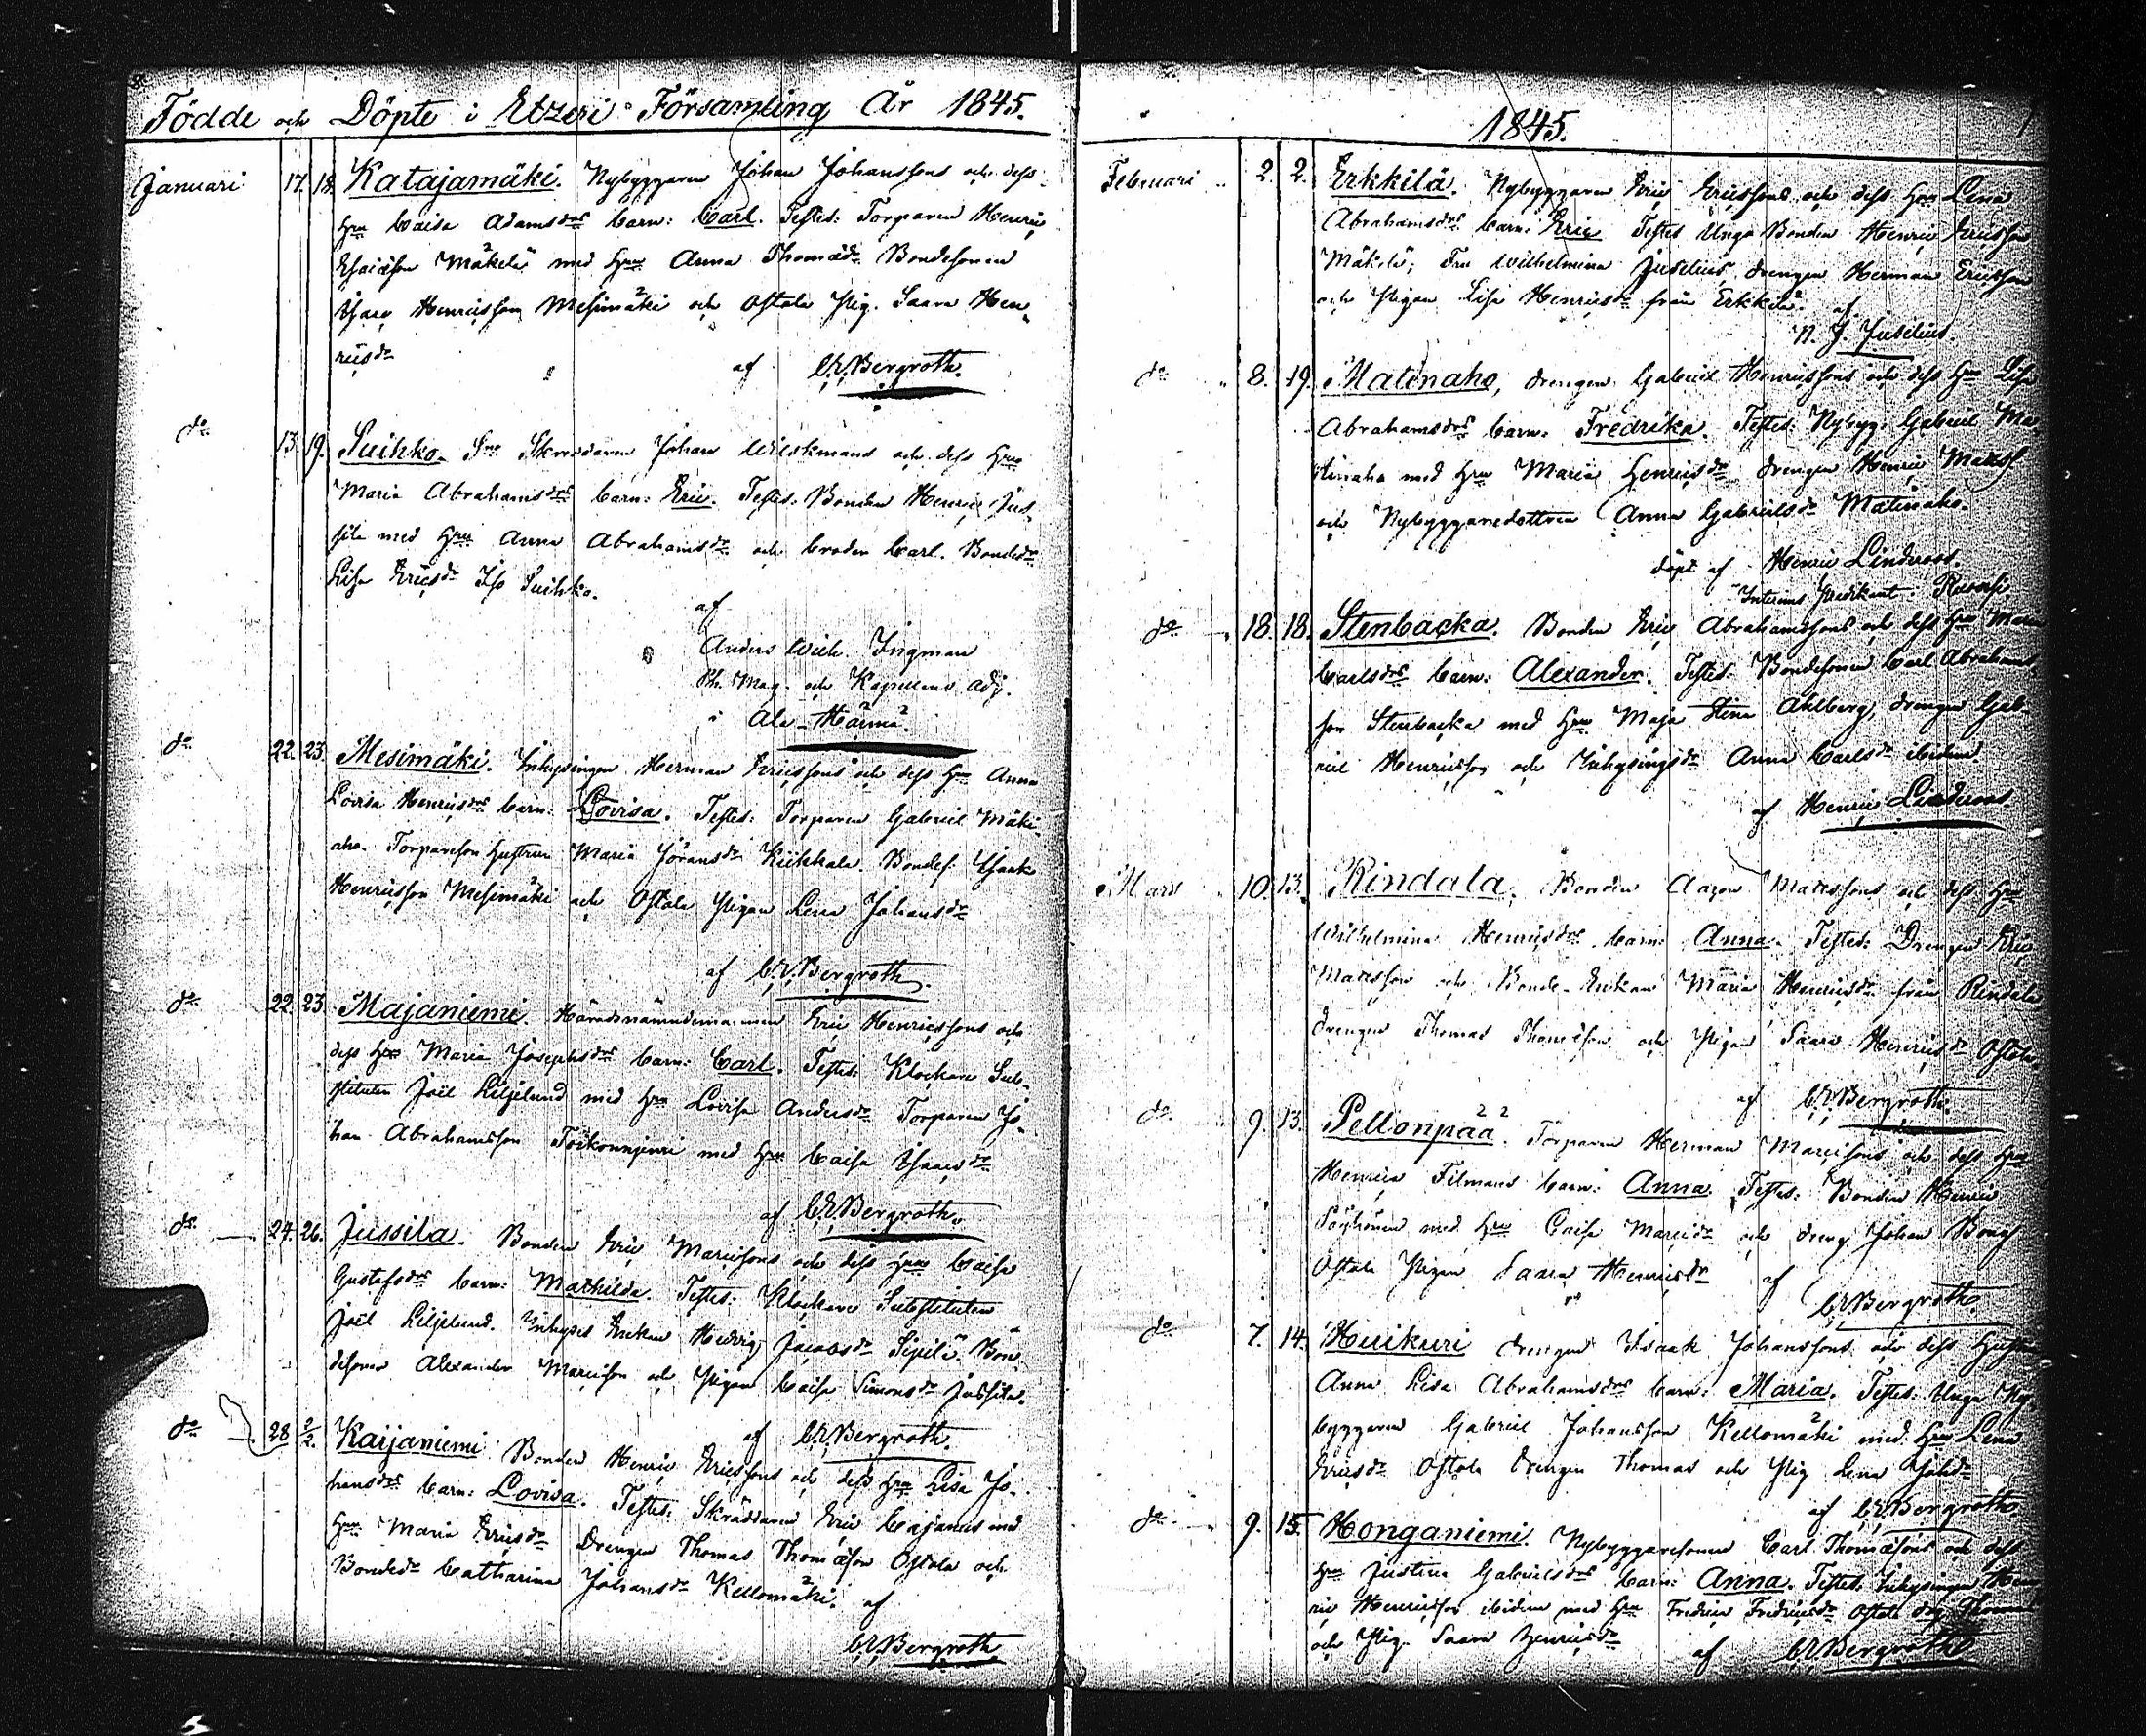 Födde och Döpte i Etzeri Församling År 1845.
Januari 17. 18. Katajamäki. Nybyggaren Johan Johanssons och dess
Hru Caisa Adamsdrs barn: Carl. Testes: Torparen Henric
Esaiæson Mäkelä med Hru Anna Thomædr Bondesonen
Isaac Henricsson Mesimäki och Ostola Pig. Saara Hen-
ricsdr
af C.E. Bergroth.
do 13. 19. Suihko. Skräddaren Johan Wilskmans och dess Hru
Maria Abrahamsdrs barn: Eric. Testes: Bonden Henric Jus-
sila med Hru Anna Abrahamsdr och brodren Carl. Bondedr
Lisa Ericsdr Suihko.
af
Anders Wilh. Ingman
Ph. Mag. och Kapellans Adj.
i Ala-Härmä.
do 22. 23. Mesimäki. Inhysingen Herman Ericssons och dess Hru Anna
Lovisa Henricsdrs barn: Lovisa. Testes: Torparen Gabriel Mäki-
aho. Torpareson hustrun Maria Jöransdr Kiikkala. Bondes: Isaak
Henricsson Mesimäki och Ostola Pigan Lena Johansdr
af C.E. Bergroth.
do 22. 23. Majaniemi. Häradsnämndemannen Eric Henricssons och
dess Hru Maria Josephsdrs barn: Carl. Testes: Klockare Sub-
stituten Joël Liljelund med Hru Lovisa Andersdr Torparen Jo-
han Abrahamsson med Hru Caisa Isaacsdr
af C.E. Bergroth.
do 24. 26. Jussila. Bonden Eric Marcissons och dess Hru Caisa
Gustafsdrs barn: Mathilda. Testes: Klockare Substituten
Joël Liljelund. Inhyses Enkan Hedvig Jacobsdr Sipilä. Bon-
desonen Alexander Marcisson och Pigan Caisa Simonsdr Jussila.
af C.E. Bergroth.
do 28 2/2. Kaijaniemi Bonden Henric Ericssons och dess Hru Lisa Jo-
hansdrs barn: Lovisa. Testes: Skräddaren Eric Cajanus med
Hru Maria Ericsdr Drengen Thomas Thomæson Ostola och
Bondedr Catharina Johansdr Kellomäki. af
C.E. Bergroth
1845.
Februari 2. 2. Erkkilä. Nybyggaren Eric Ericssons och dess Hru Lena
Abrahamsdrs barn: Eric Testes Unga Bonden Henric Ericsson
Mäkelä; Fru Wilhelmina Juselius, drengen Herman Ericsson
och Pigan Lisa Henricsdr från Erkkilä.
af
N. J. Juselius.
do 8. 19. Matinaho, drengen Gabriel Henricssons och dess Hru Lisa
Abrahamsdrs barn: Fredrika. Testes: Nybyg: Gabriel Ma-
tinaho med Hru Maria Henricsdr drengen Henric Matss.
och Nybyggaredottren Anna Gabrielsdr Matinaho.
döpt af Henric Lindroos.
Interims Predikant
do 18. 18. Stenbacka. Bonden Eric Abrahamssons och dess Hru Maria
Carlsdrs barn: Alexander. Testes: Bondesonen Carl Abrahams-
son Stenbacka med Hru Maja Stina Ahlberg, drengen Gab-
riel Henricsson och Inhysingsdr Anna Carlsdr ibidem
af Henric Lindroos
Mars 10. 13. Rindala. Bonden Aaron Matssons och dess Hru
Wilhelmina Henricsdrs barn: Anna. Testes: Drengen Eric
Matsson och Bonde-Enkan Maria Henricsdr från Rindala
drengen Thomas Thomæson och Pigan Saara Henricsdr Ostola.
af C.E. Bergroth.
do 9. 13. Pellonpää. Torparen Herman Marcissons och dess Hru
Henrica Filmans barn: Anna. Testes: Bonden Henric
med Hru Caisa Marcidr och dreng Johan Bong
Ostola Pigan Saara Henricsdr af
C.E. Bergroth
do 7. 14. Huikuri drengen Isaak Johanssons och dess Hustru
Anna Lisa Abrahamsdrs barn: Maria. Testes: Unga Ny-
byggaren Gabriel Johansson Kellomäki med Hru Lena
Ericsdr Ostola Drengen Thomas och Pig Lena Johdr
af C.E. Bergroth.
do 9. 15. Honganiemi. Nybyggaresonen Carl Thomæsons och dess
Hru Justina Gabrielsdrs barn: Anna. Testes: Inhysingen Hen-
ric Henricsson ibidem med Hru Fredrica Fredricsdr Ostola drg Thomas
och Pig. Saara Henricsdr
af C.E. Bergroth